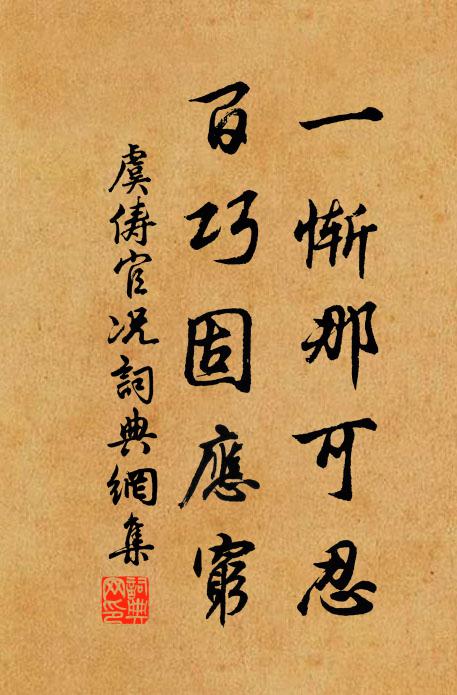 一慚那可忍
百巧固應窮
虞儔官況詞典網集
詞典
网印